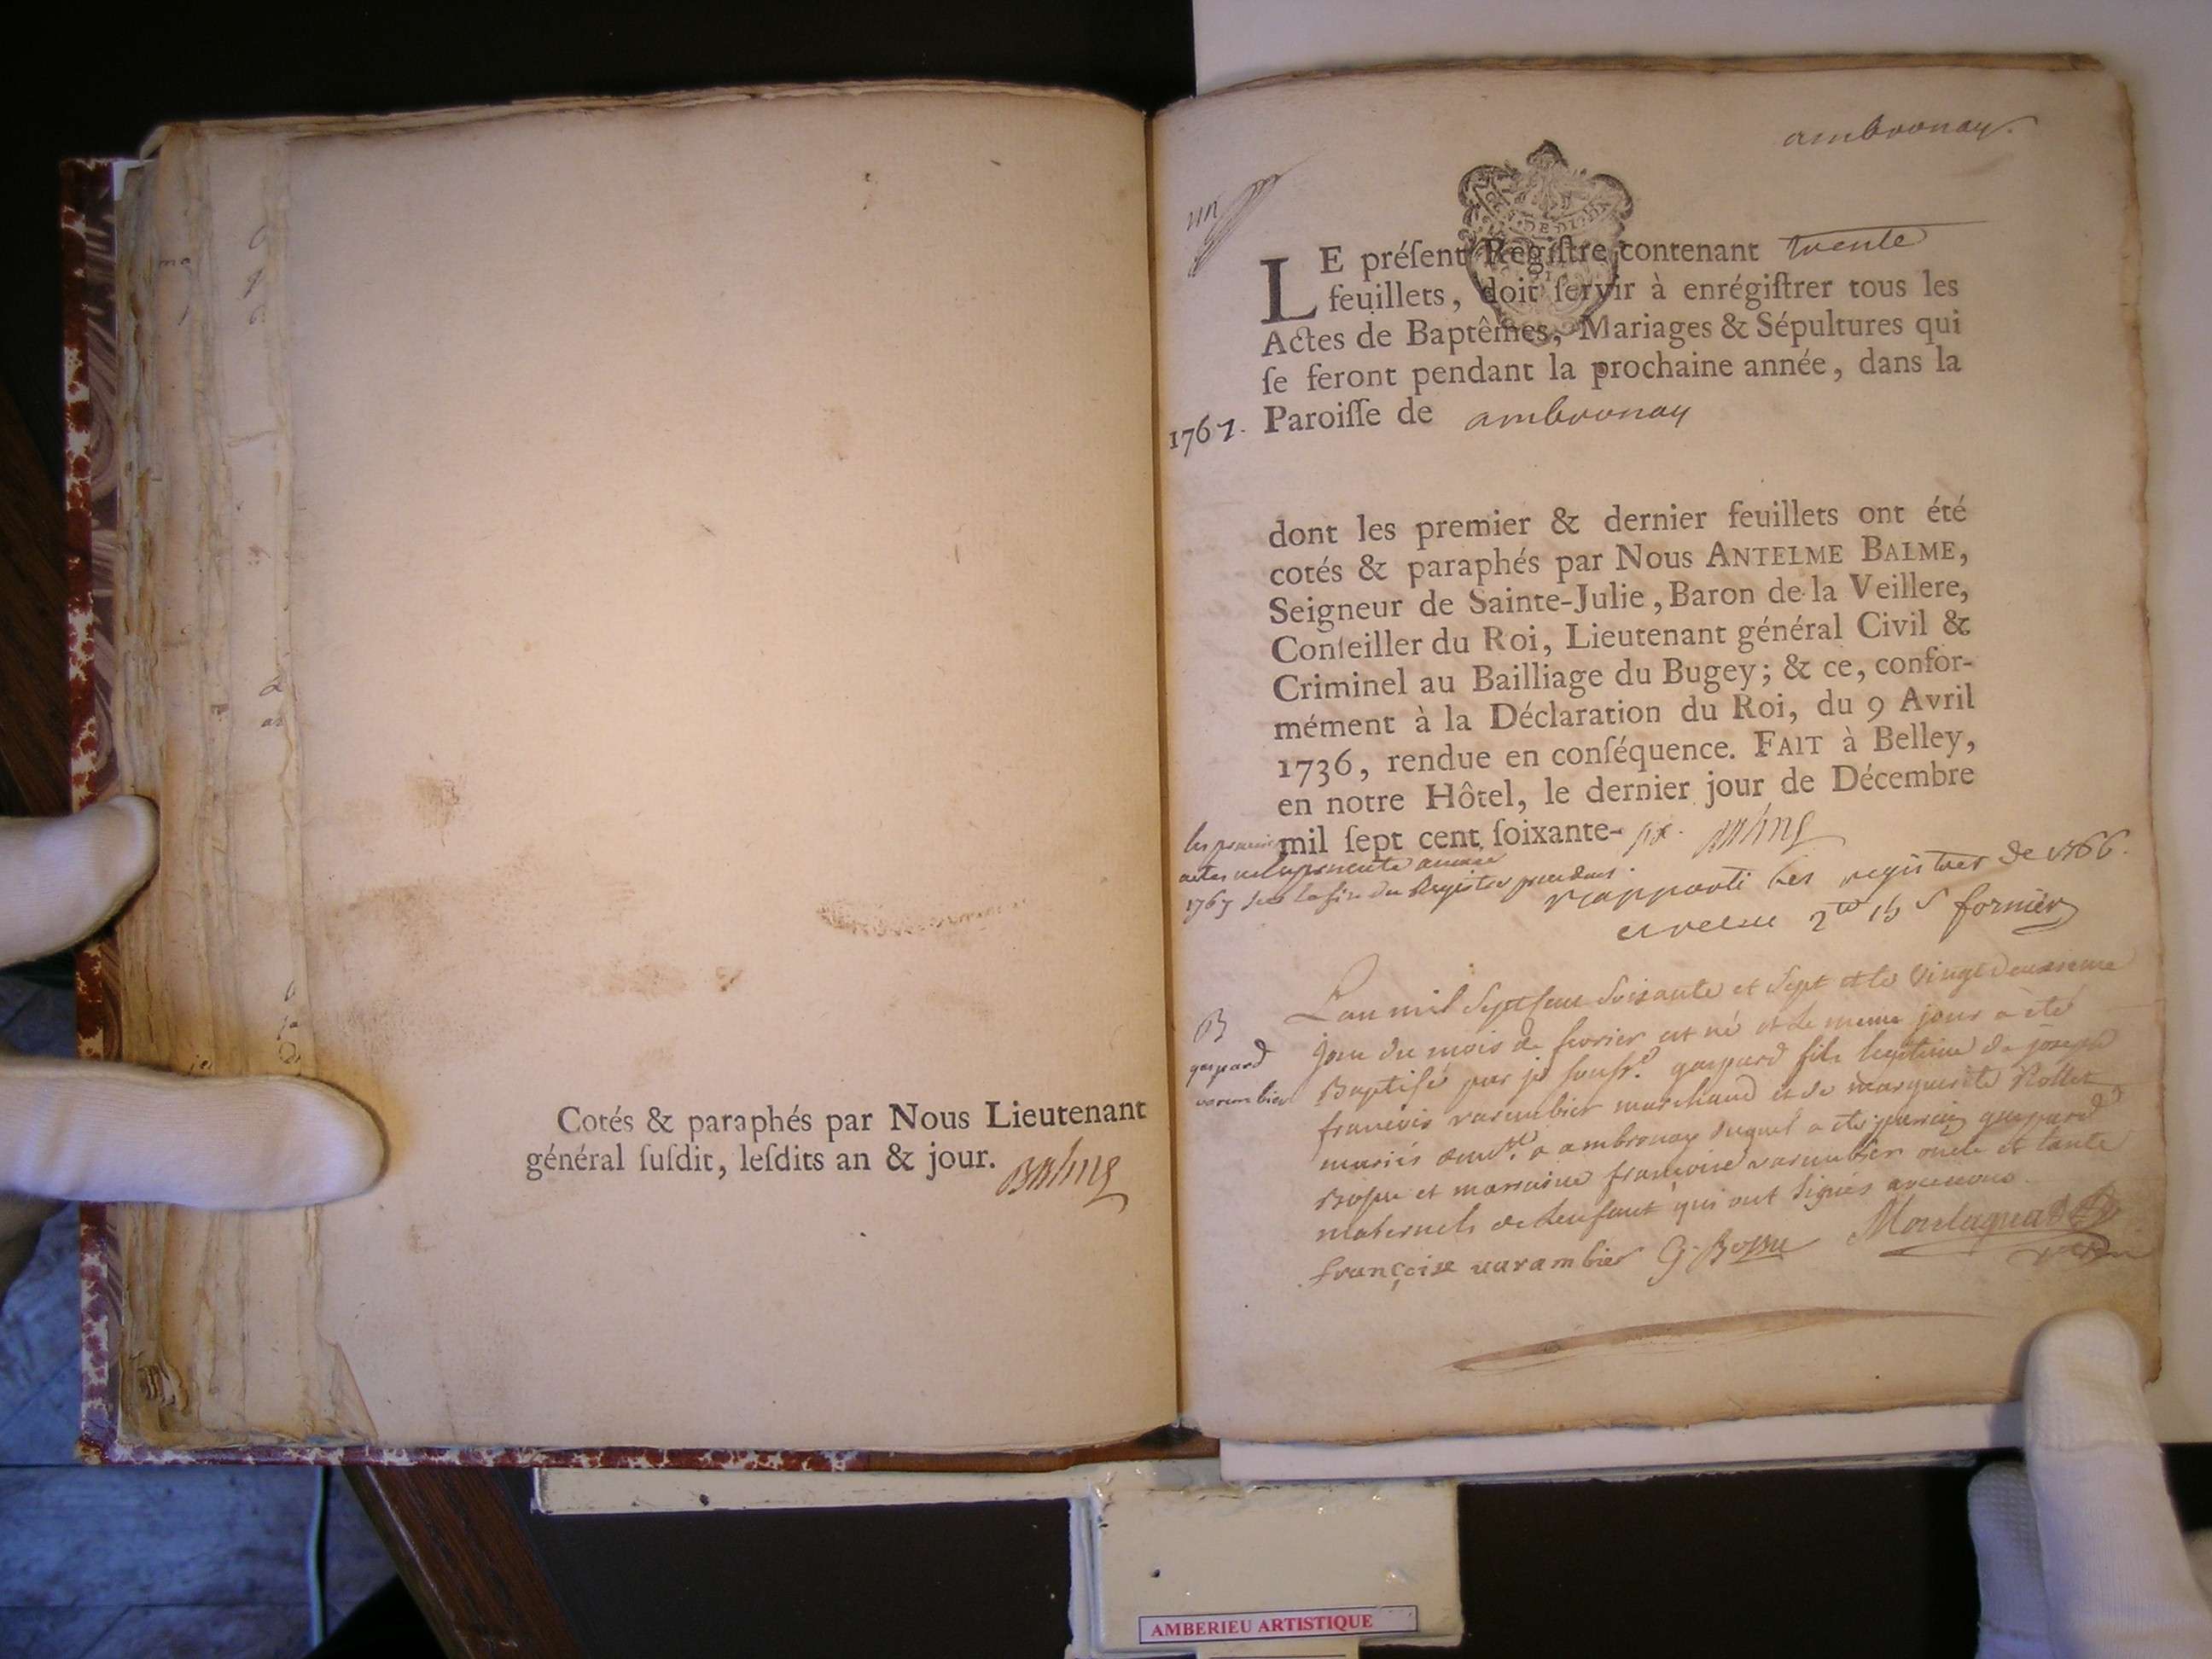 Cotés & paraphés par Nous Lieutenant
général ſuſdit, leſdits an & jour. Balme
ambronay.
un
LE préſent Regiſtre contenant trente
feuillets, doit ſervir à enrégiſtrer tous les
Actes de Baptêmes, Mariages & Sépultures qui
ſe feront pendant la prochaine année, dans la
1767. Paroiſſe de ambronay
dont les premier & dernier feuillets ont été
cotés & paraphés par Nous ANTELME BALME,
Seigneur de Sainte-Julie, Baron de la Veillere,
Conſeiller du Roi, Lieutenant général Civil &
Criminel au Bailliage du Bugey; & ce, confor-
mément à la Déclaration du Roi, du 9 Avril
1736, rendue en conſéquence. FAIT à Belley,
en notre Hôtel, le dernier jour de Décembre
mil ſept cent ſoixante- six. Balme
les premiers
actes de la presente année
1767 sur la fin du Registre precedent.
rapporté les registres de 1766.
fornier
B
gaspard
varambier
L'an mil sept cent soixante et sept et le vingt deuxieme
jour du mois de fevrier est né et le meme jour a été
Baptisé par je souss.é gaspard fils legitime de joseph
francois varambier marchand et de marguerite Rollet
mariés a ambronay duquel a été parrain gaspard
Bossu et marraine francoise varambier oncle et tante
maternels de l'enfant qui ont signés avec nous.
françoise varambier G. Bossu
AMBERIEU ARTISTIQUE